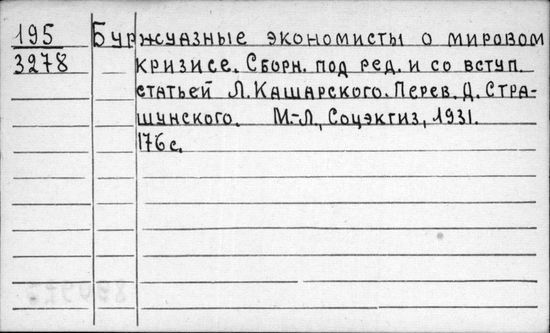 195
3278
Буржуазные экономисты о мировом
кризисе. Сборн. под ред. и со вступ.
статьей Л. Кашарского. Перев. Д. Стра-
шунского. М.-Л., Соцэкгиз, 1931.
176 с.